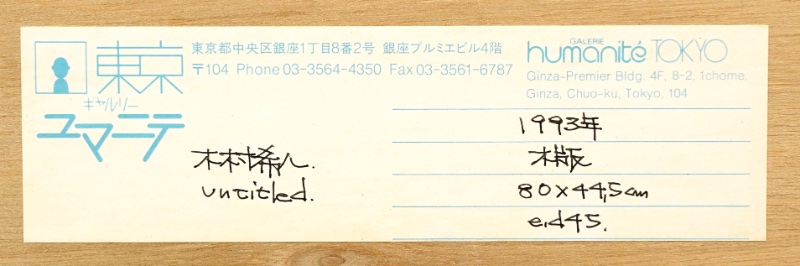 東京
ギャルリー
ユマニテ
東京都中央区銀座1丁目8番2号 銀座プルミエビル4階
〒104 Phone 03-3564-4350 Fax 03-3561-6787
GALERIE
humanité TOKYO
Ginza-Premier Bldg. 4F, 8-2, 1chome.
Ginza, Chuo-ku, Tokyo, 104
木村希八.
untitled.
1993年
木版
80×44,5cm
e.d45.